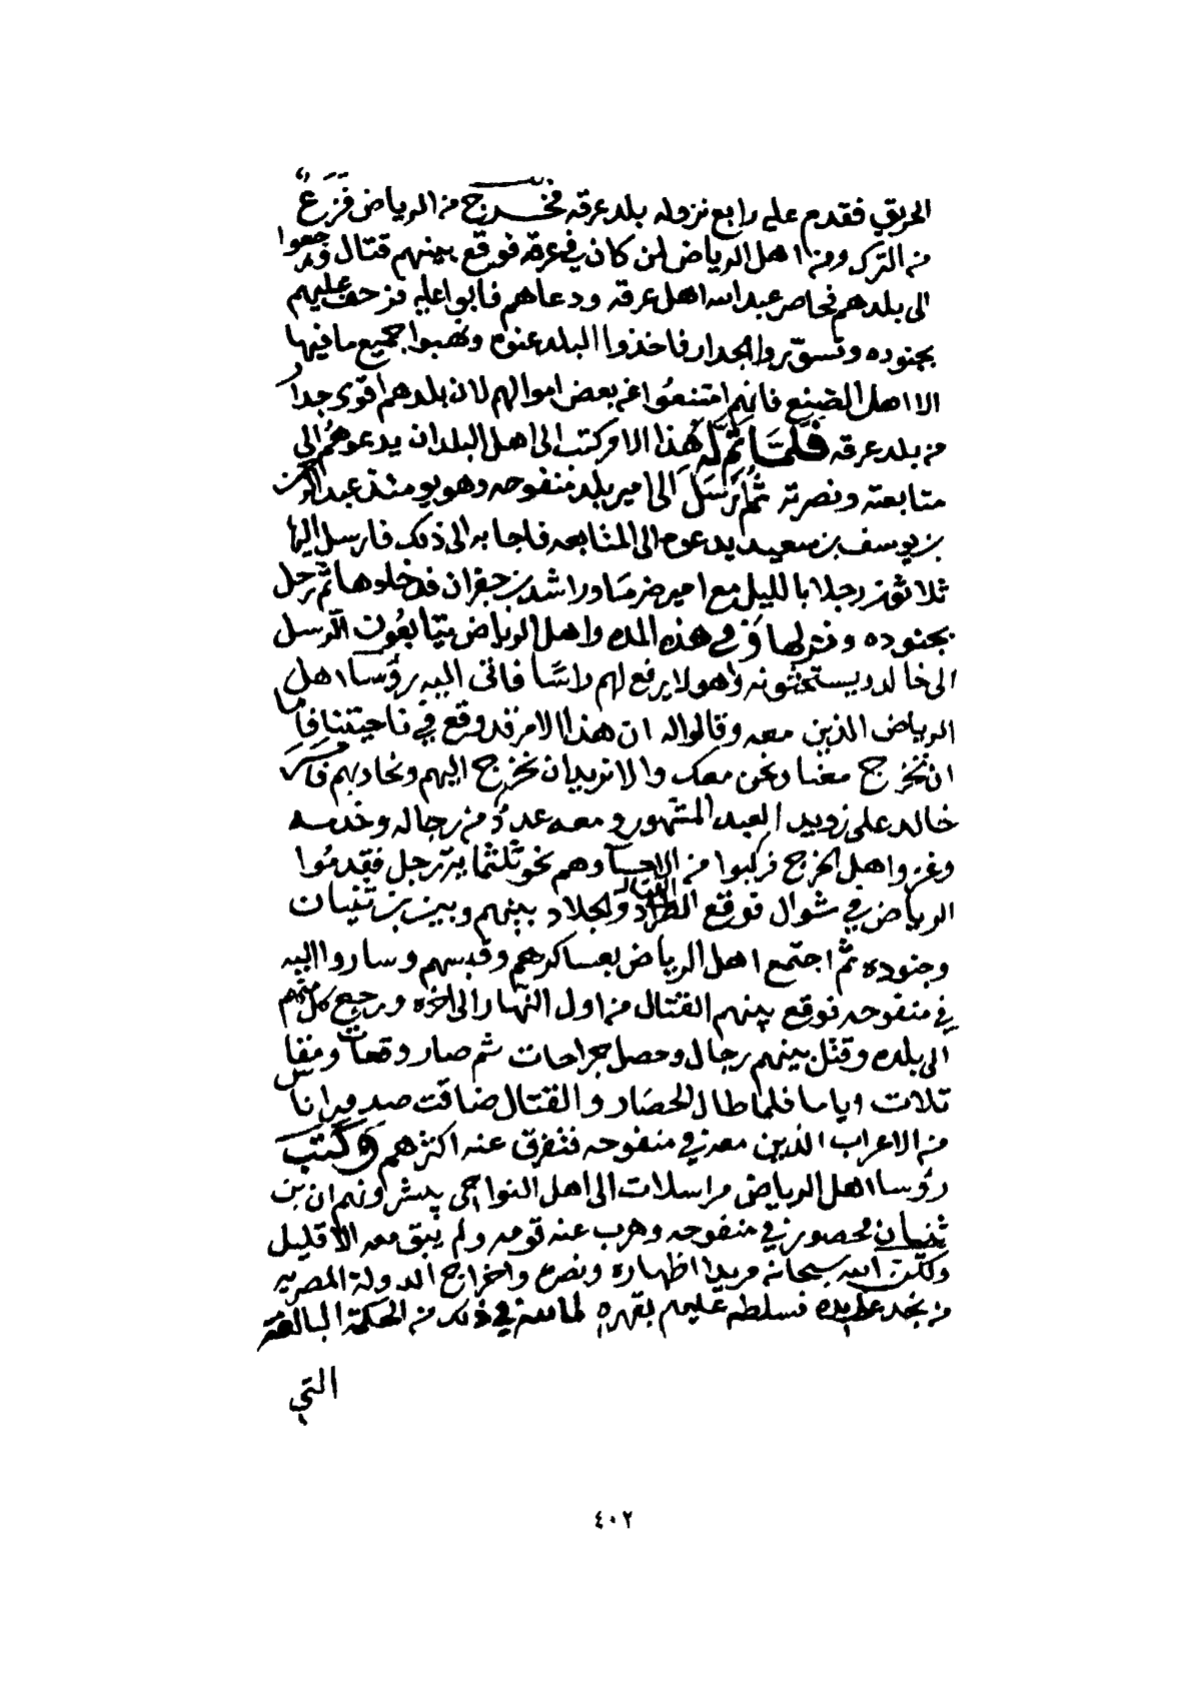 الحريق فقدم عليه رابع نزوله بلد عرقه فخرج من الرياض فزع
من الترك ومن اهل الرياض لمن كان في عرقة فوقع بينهم قتال ورجعوا
الى بلدهم فحاصر عبدالله اهل عرقه ودعاهم فابوا عليه فزحف عليهم
بجنوده وتسوّروا الجدار فاخذوا البلد عنوه ونهبوا جميع ما فيها
الا اهل الضبع فانهم امتنعوا عن بعض اموالهم لان بلدهم اقوى جداً
من بلد عرقه فلمّا تمّ له هذا الامر كتب الى اهل البلدان يدعوهم الى
متابعته ونصرته ثم ارسل الى امير بلد منفوحه وهو يومئذ عبدالرحمن
بن يوسف بن سعيد يدعوه الى المتابعه فاجابه الى ذلك فارسل اليها
ثلاثون رجلا بالليل مع امير ضرما وراشد بن جفران فدخلوها ثم رحل
بجنوده ونزلها وفي هذه المده واهل الرياض يتابعون الرسل
الى خالد ويستحثونه وهو لا يرفع لهم راسًا فاتى اليه رؤسا اهل
الرياض الذين معه وقالوا له ان هذا الامر قد وقع في ناحيتنا فاما
ان تخرج معنا ونحن معك والا نريد ان نخرج اليهم ونحاربهم فامر
خالد على زويد العبد المشهور ومعه عدد من رجاله وخدمه
وغزو اهل الخرج فركبوا من الاحسا وهم نحو ثلثماية رجل فقدموا
الرياض في شوال فوقع القتال الطراد والجلاد بينهم وبين بن ثنيان
وجنوده ثم اجتمع اهل الرياض بعساكرهم وقبسهم وساروا اليه
في منفوحه فوقع بينهم القتال من اول النهار الى اخره ورجع كل منهم
الى بلده وقتل بينهم رجال وحصل جراحات ثم صار وقعات ومقا
تلات واياما فلما طال الحصار والقتال ضاقت صدور اناس
من الاعراب الذين معه في منفوحه فتفرق عنه اكثرهم وكتب
رؤسا اهل الرياض مراسلات الى اهل النواحي يبشرونهم ان بن
ثنيان محصور في منفوحه وهرب عنه قومه ولم يبق معه الا قليل
ولكن الله سبحانه مريدا اظهاره ونصره واخراج الدولة المصريه
من نجد على يده فسلطه عليهم بقهره لما لله في ذلك من الحكمة البالغة
التي
٤٠٢